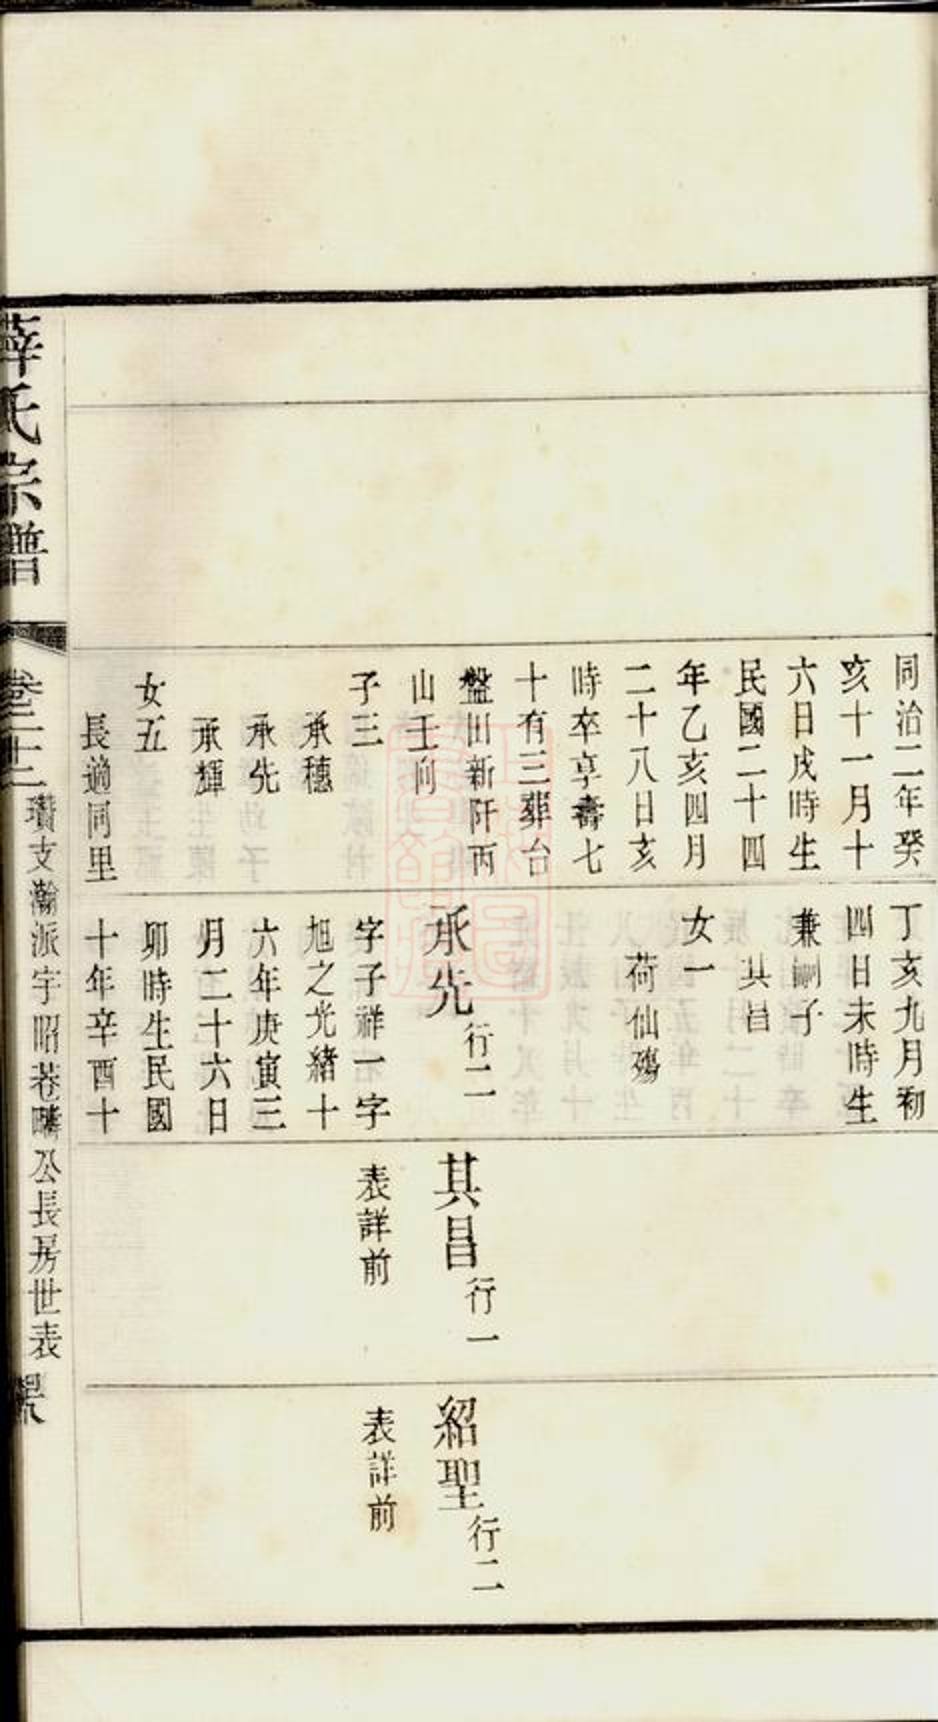 同治二年癸
亥十一月十
六日戌時生
民國二十四
年乙亥四月
二十八日亥
時卒享壽七
十有三葬台
盤田新阡丙
山壬向
子三
承穗
承先
承輝
女五
長適同里
丁亥九月初
四日未時生
兼嗣子
其昌
女一
荷仙殤
承先行二
字子祥一字
旭之光緒十
六年庚寅三
月二十六日
卯時生民國
十年辛酉十
其昌行一
表詳前
紹聖行二
表詳前
薛氏宗譜
卷二十二
瓚支瀚派宇昭菴疇公長房世表